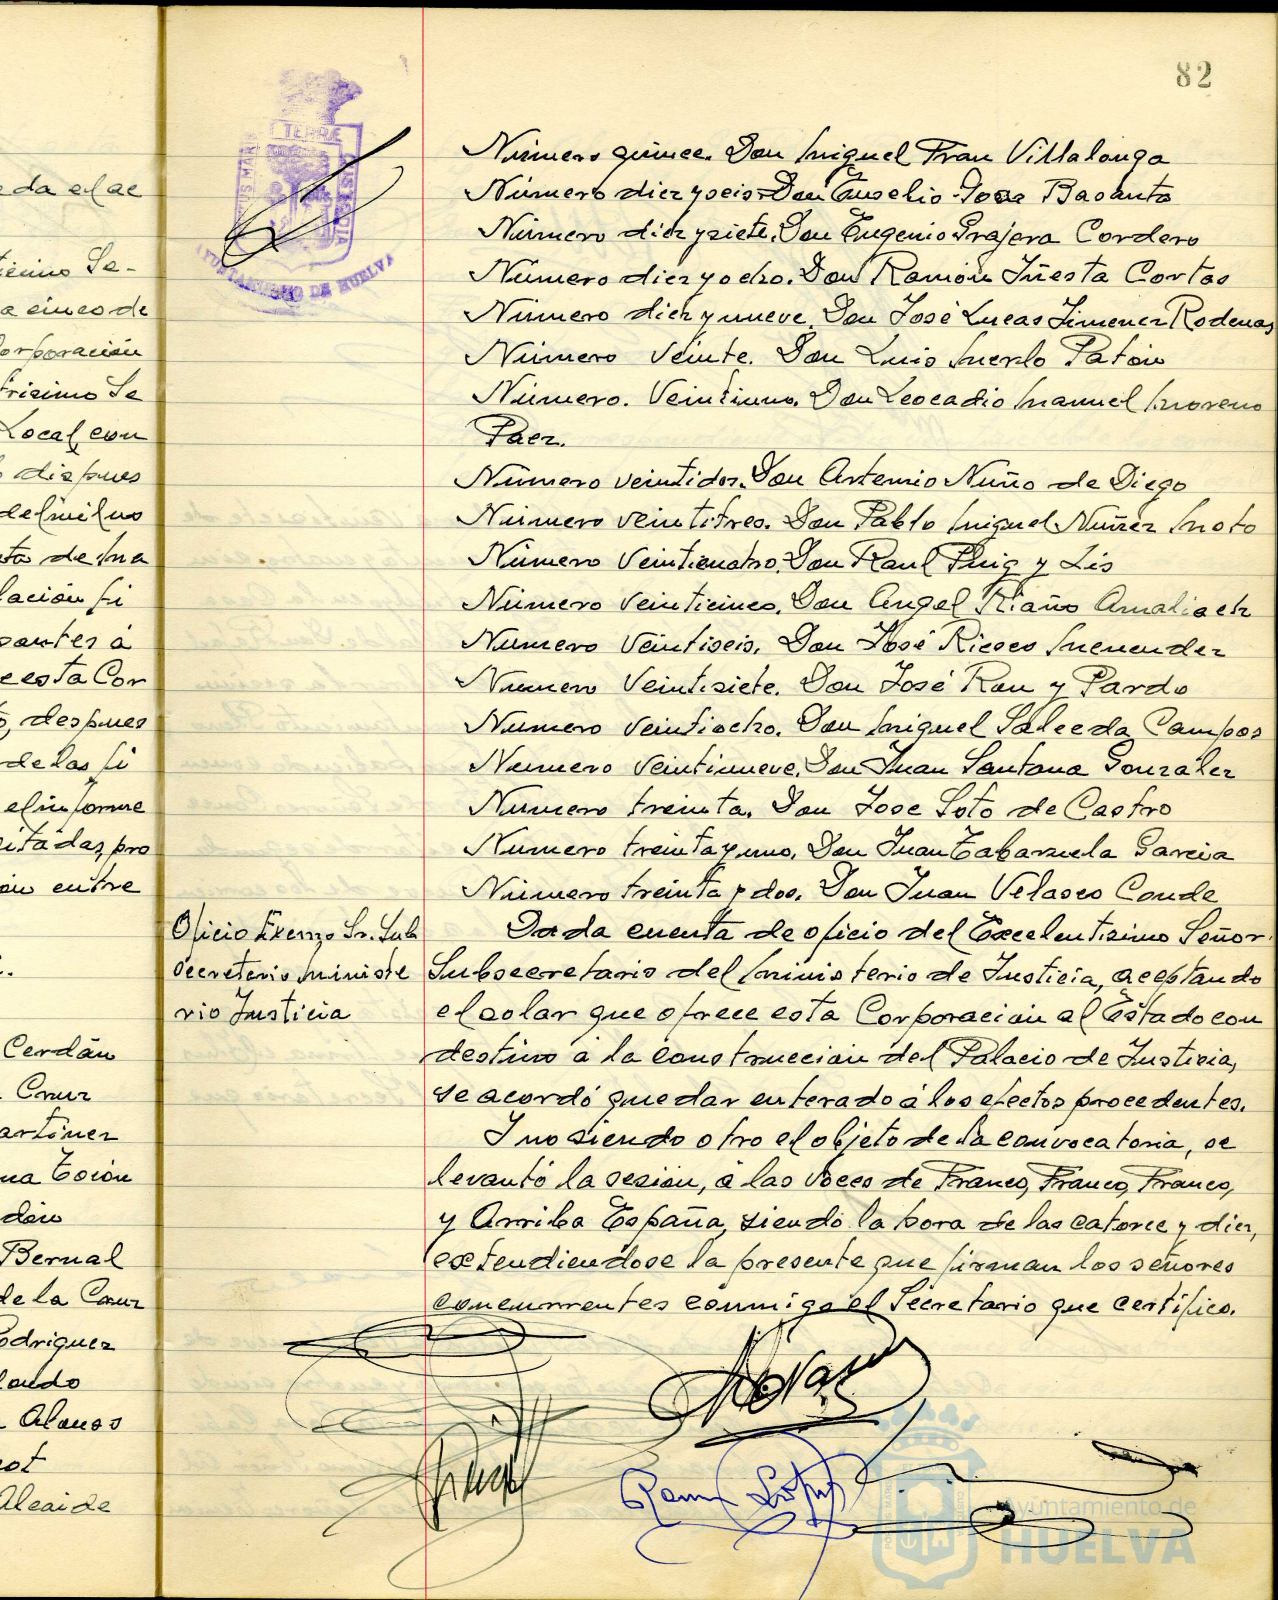 82
PORTUS MARIS ET TERRÆ CUSTODIA
AYUNTAMIENTO DE HUELVA
da el ac
tisimo Se-
a cinco de
Corporación
trisimo Se
Local, con
dispues
de mil no
de Ma
lación fi
santes á
e esta Cor
despues
de las fi
el informe
citadas, pro
entre
Cerdán
Cruz
artinez
na Toión
dón
Bernal
de la Cruz
Rodriguez
lando
Alonso
ot
Alcaide
Número quince. Don Miguel Fran Villalonga
Número diez y seis. Don Eusebio Basanta
Número diez y siete. Don Eugenio Grajera Cordero
Número diez y ocho. Don Ramón Iñesta Cortas
Número diez y nueve. Don José Lucas Jimenez Rodenas
Número veinte. Don Luis Merlo Patón
Número. Veintiuno. Don Leocadio Manuel Moreno
Paez.
Número veintidos. Don Artemio Nuño de Diego
Número veintitres. Don Pablo Miguel Núñez Moto
Número veinticuatro. Don Raul Puig y Lis
Número veinticinco. Don Angel Riaño
Número veintiseis. Don José Riesco Menendez
Número veintisiete. Don José Ron y Pardo
Número veintiocho. Don Miguel Salceda Campos
Número veintinueve. Don Juan Santana González
Número treinta. Don Jose Soto de Castro
Número treinta y uno. Don Juan Tabarzuela Garcia
Número treinta y dos. Don Juan Velasco Conde
Oficio Excmo Sr. Sub
secretario Ministe
rio Justicia
Dada cuenta de oficio del Excelentisimo Señor
Subsecretario del Ministerio de Justicia, aceptando
el solar que ofrece esta Corporación al Estado con
destino á la construcción del Palacio de Justicia,
se acordó quedar enterado á los efectos procedentes.
Y no siendo otro el objeto de la convocatoria, se
levantó la sesión, á las voces de Franco, Franco, Franco,
y Arriba España, siendo la hora de las catorce y diez,
extendiendose la presente que firman los señores
concurrentes conmigo el Secretario que certifico.
Ayuntamiento de
HUELVA